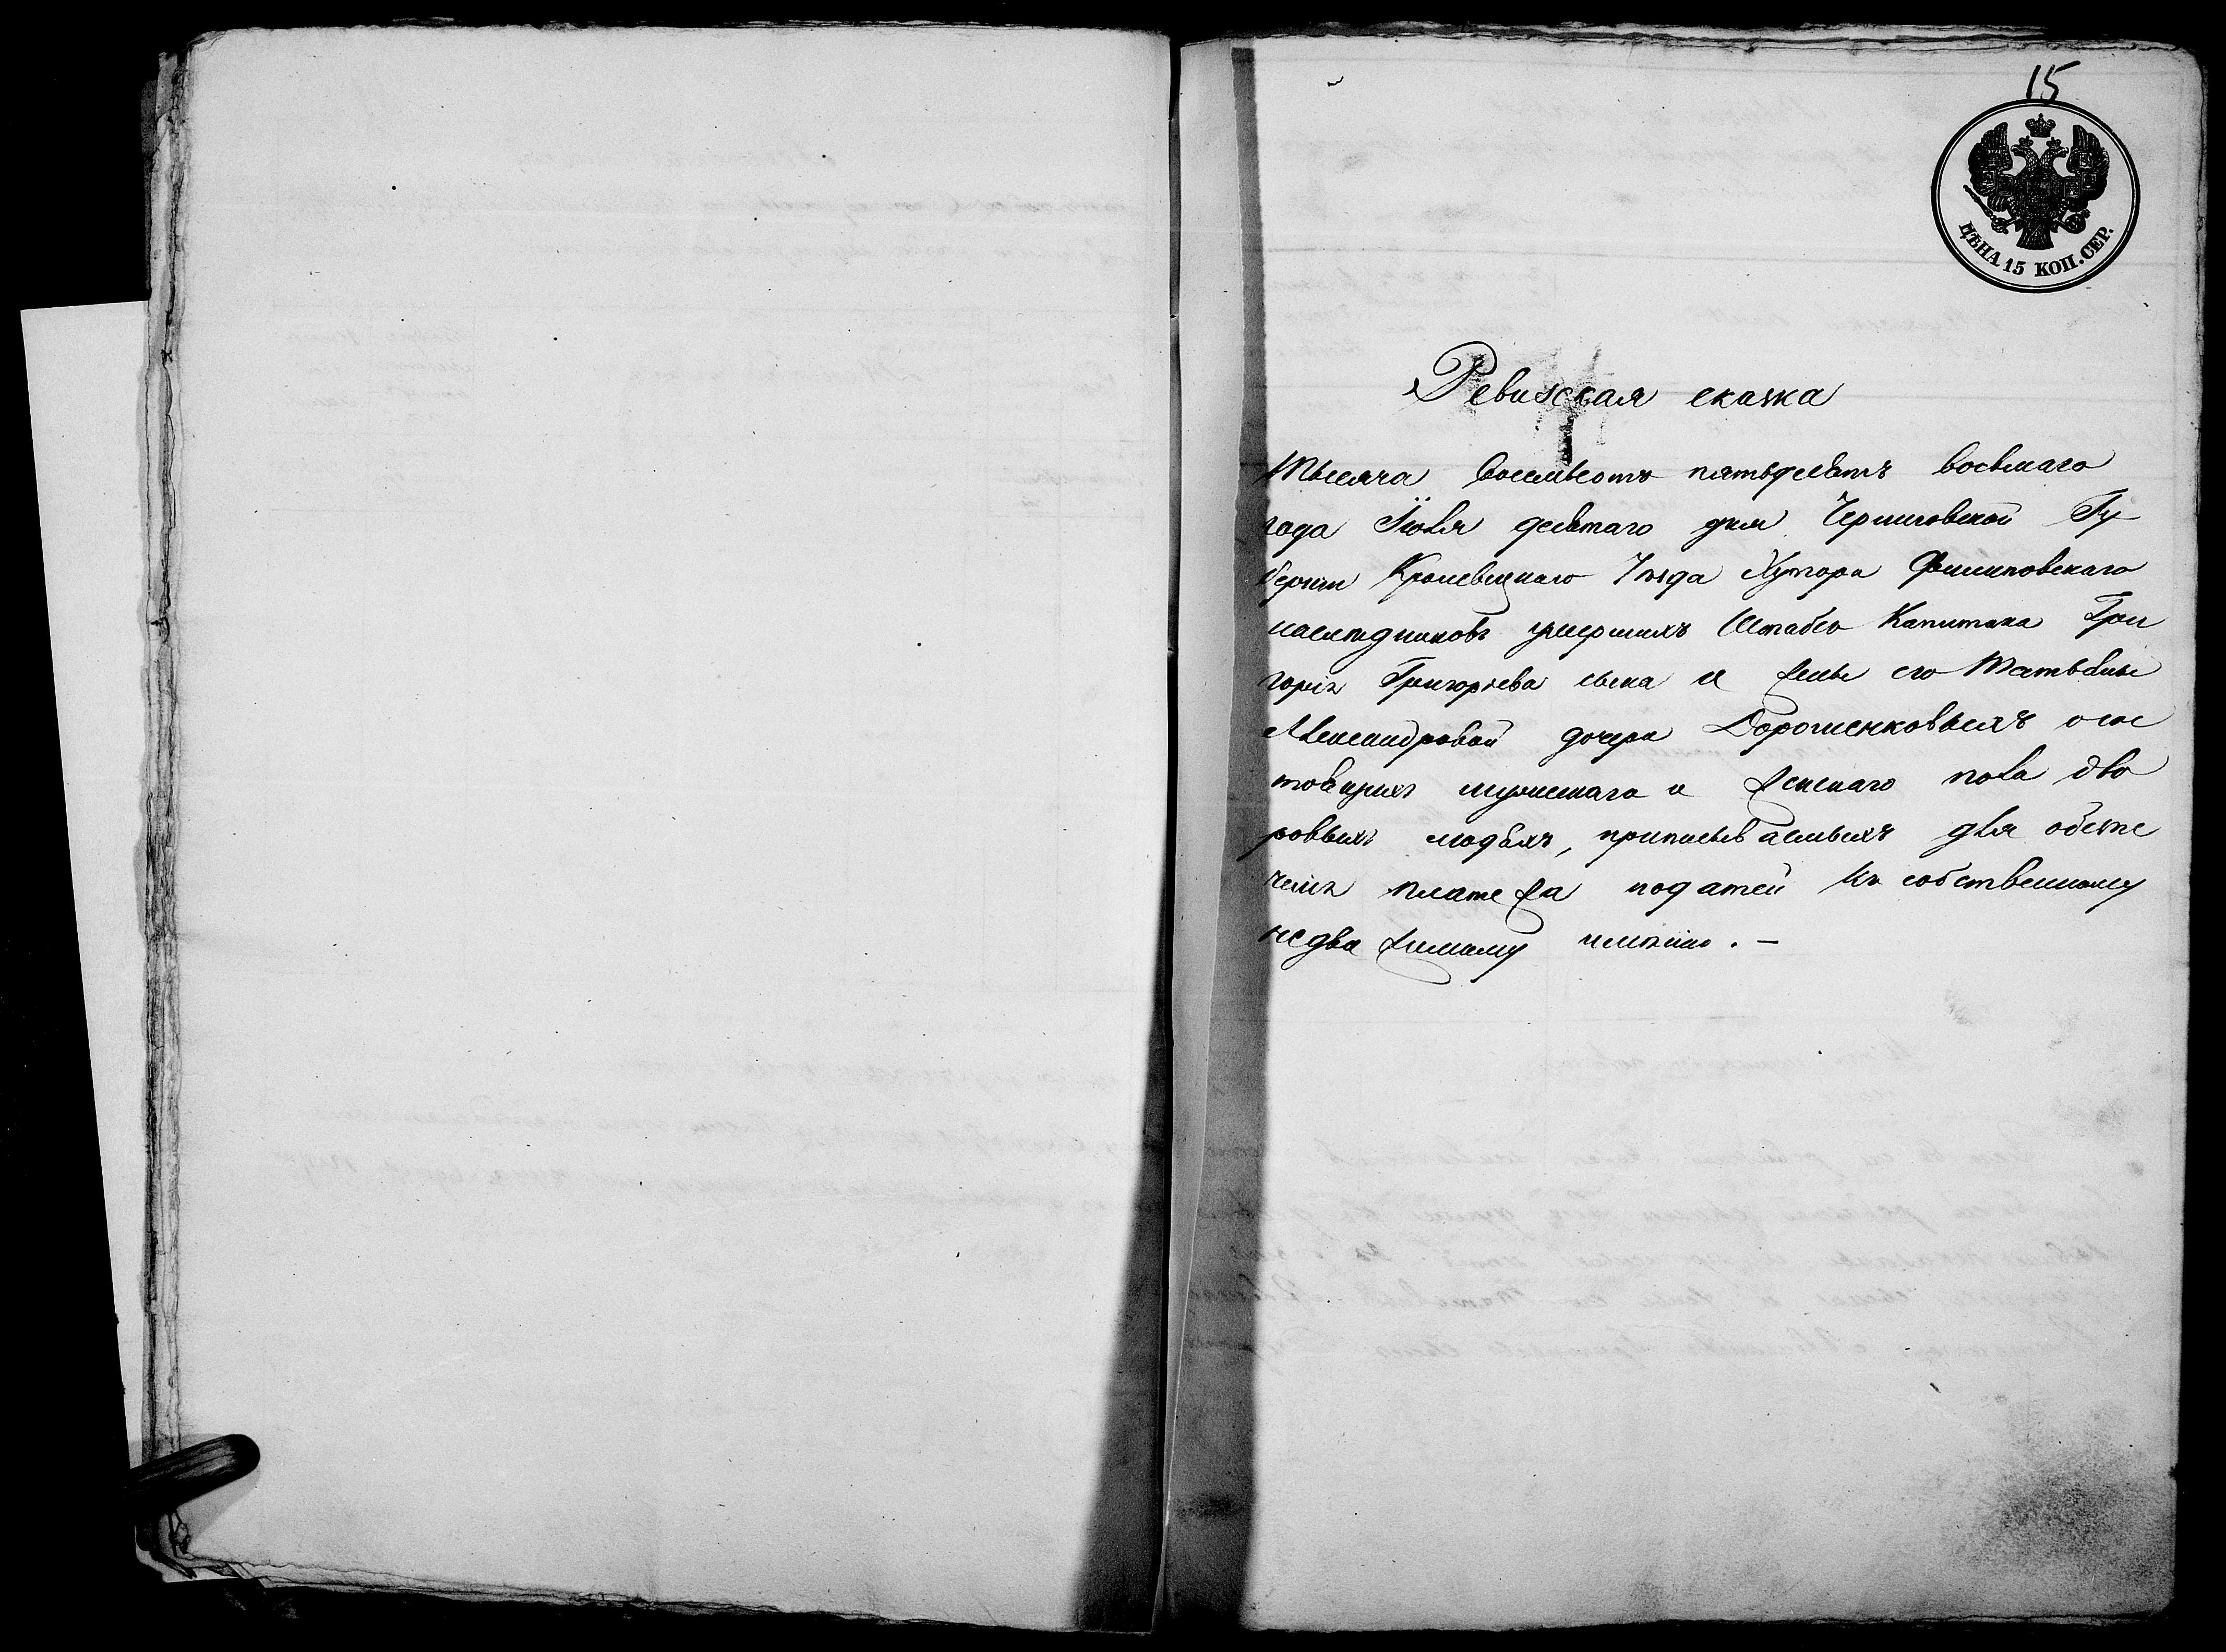 15
ЦѢНА 15 КОП. СЕР.
Ревизская сказка
Тысяча восемьсотъ пятьдесятъ восьмаго
года Іюля десятаго дня Черниговской Гу
берніи Кролевецкаго Уѣзда Хутора Филиповскаго
наслѣдниковъ умершихъ Штабсъ Капитана Гри
горія Григорьева сына и жены его Татьяны
Александровой дочери Дорошенковыхъ о сос
тоящихъ мужескаго и женскаго пола дво
ровыхъ людяхъ, приписываемыхъ для обезпе
ченія платежа податей къ собственному
недвижимому имѣнію. —